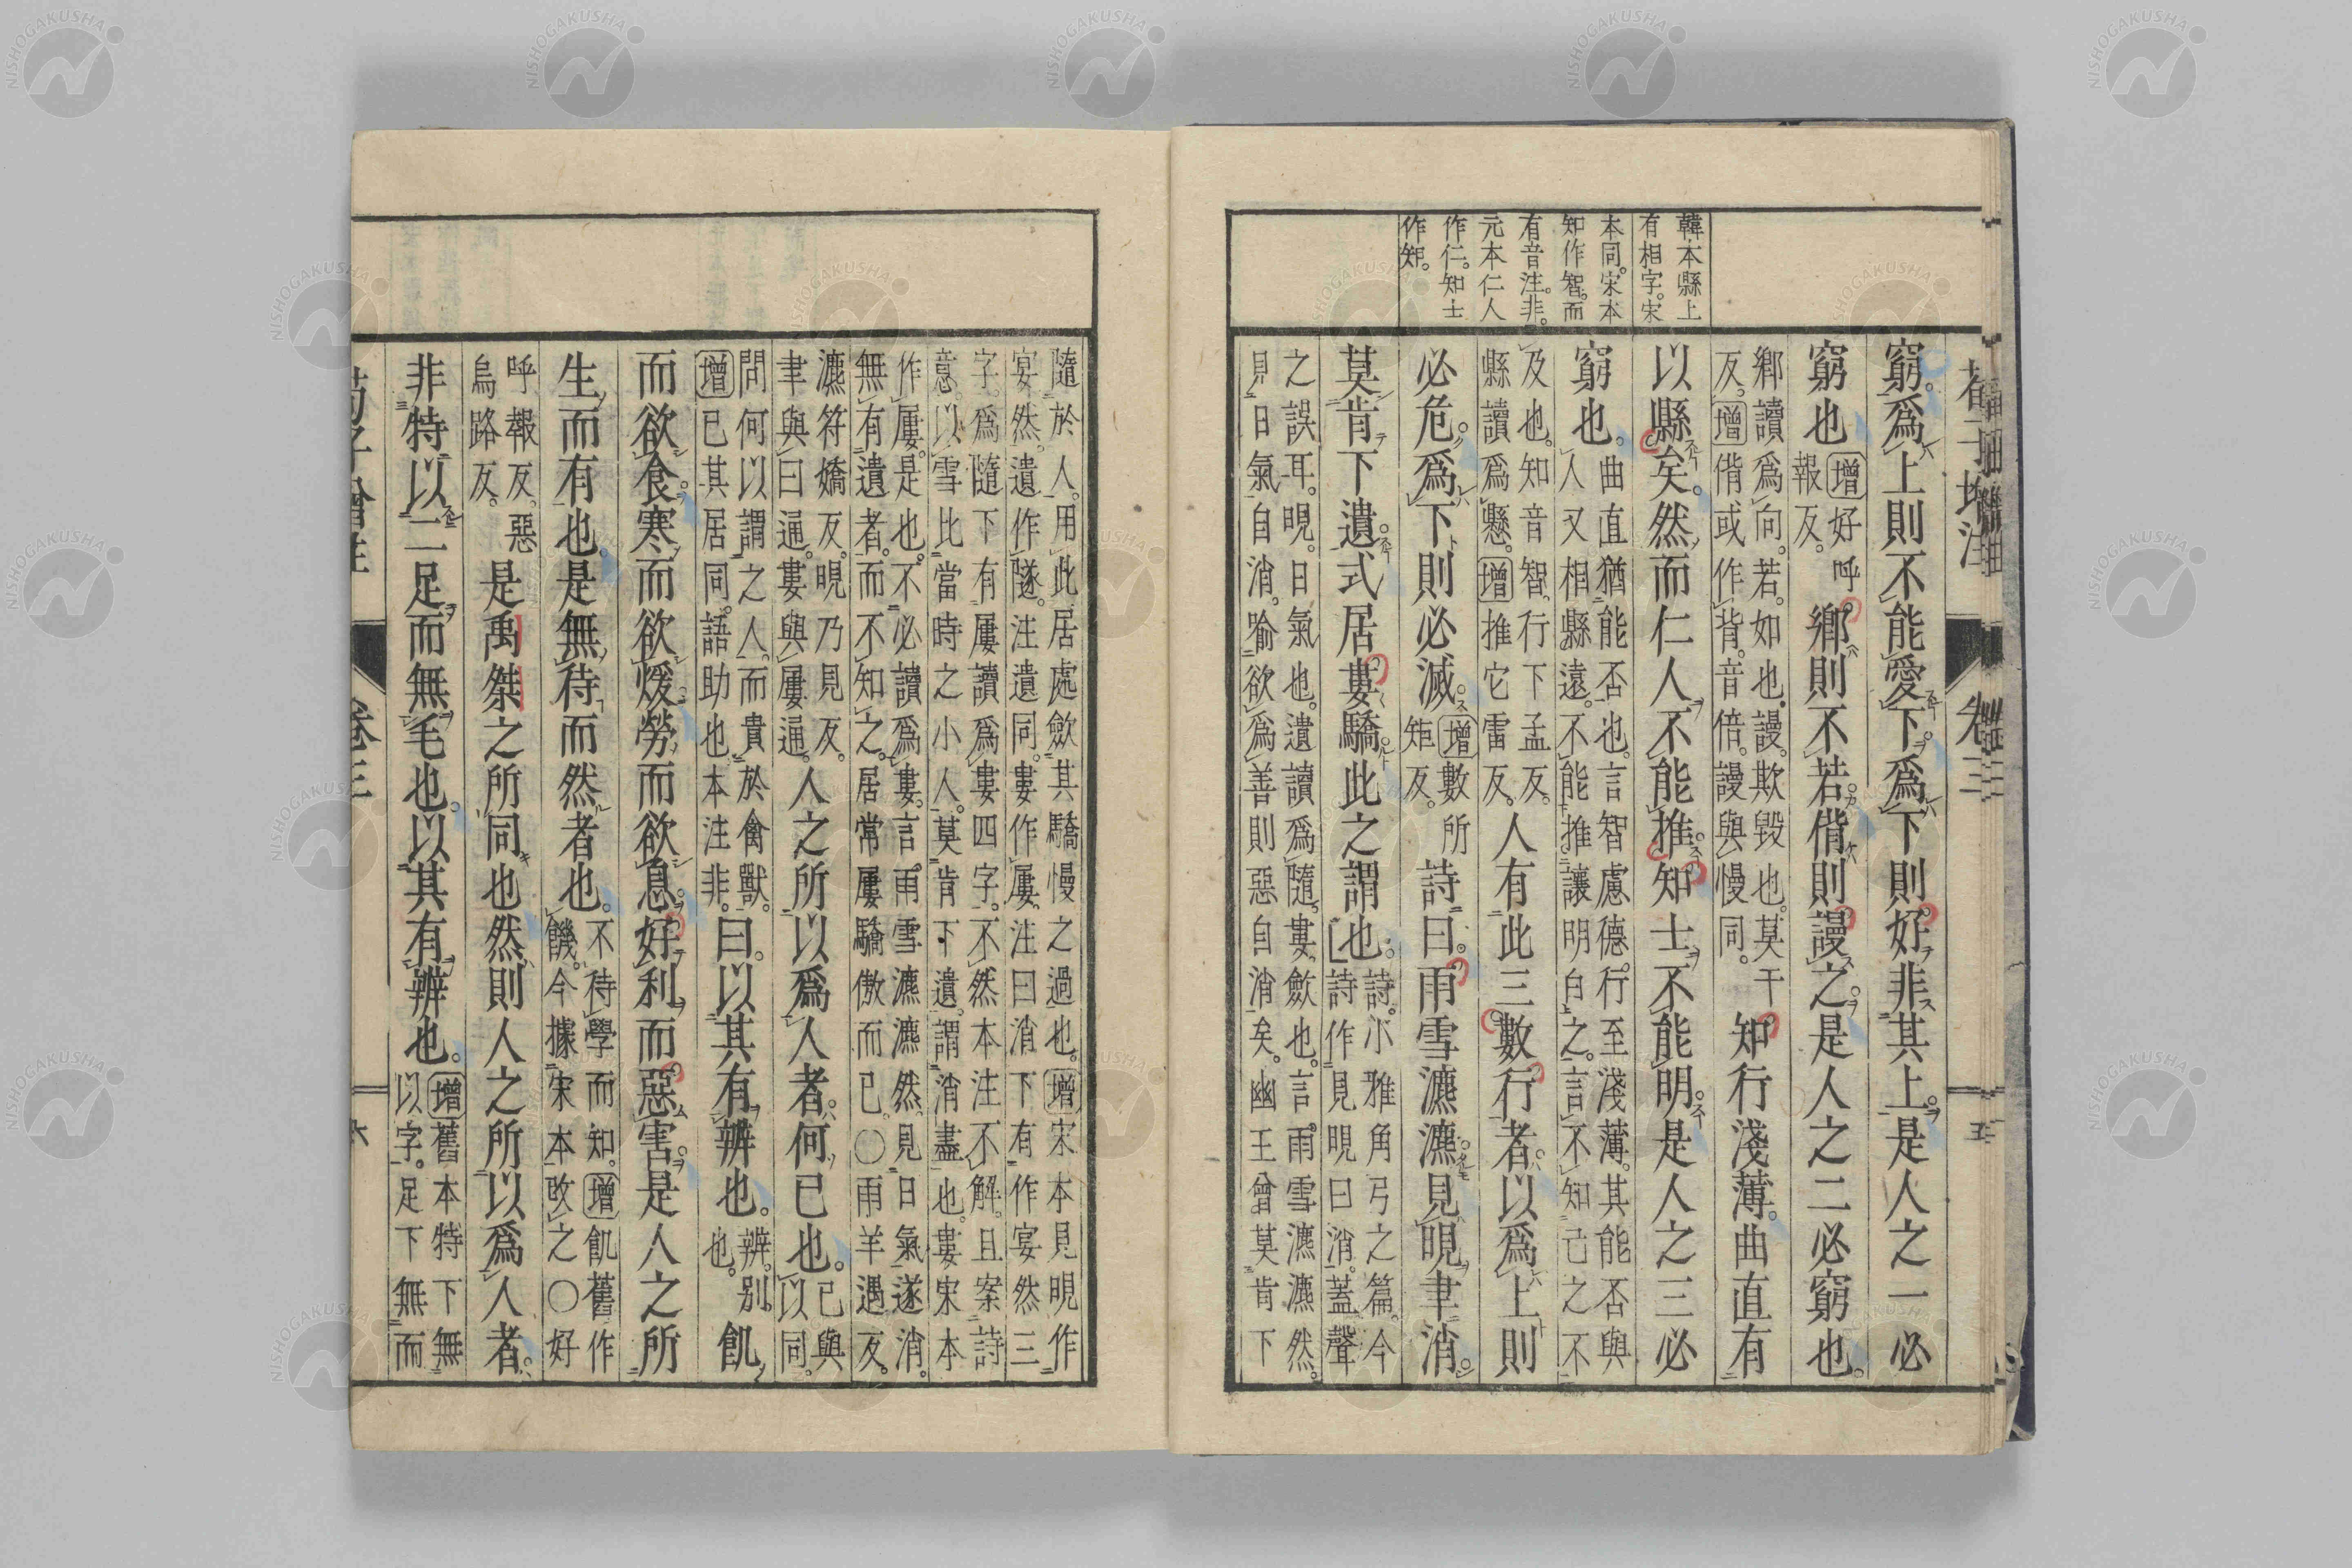 韓本縣上
有相字。宋
本同。宋本
知作智。而
有音注。非。
元本仁人
作仁。知士
作知。
窮。爲上則不能愛下。爲下則好非其上。是人之一必
窮也。增好呼報反。鄉則不若。偝則謾之。是人之二必窮也。
鄉讀爲向。若。如也。謾。欺毀也。莫干
反。增偝或作背。音倍。謾與慢同。知行淺薄。曲直有
以縣矣。然而仁人不能推。知士不能明。是人之三必
窮也。曲直猶能否也。言智慮德行至淺薄。其能否與
人又相縣遠。不能推讓明白之。言不知己之不
及也。知音智。行下孟反。
縣讀爲懸。增推它雷反。人有此三數行者。以爲上則
必危。爲下則必滅。增數所矩反。詩曰。雨雪瀌瀌。見晛聿消。
莫肯下遺。式居婁驕。此之謂也。詩。小雅角弓之篇。今
詩作見晛曰消。蓋聲
之誤耳。晛。日氣也。遺讀爲隨。婁。斂也。言雨雪瀌瀌然。
見日氣自消。喻欲爲善則惡自消矣。幽王曾莫肯下
隨於人。用此居處斂其驕慢之過也。增宋本見晛作
宴然。遺作隧。注遺同。婁作屢。注曰消下有作宴然三
字。爲隨下有屢讀爲婁四字。不然本注不解。且案詩
意。以雪比當時之小人。莫肯下遺。謂消盡也。婁宋本
作屢。是也。不必讀爲婁。言。雨雪瀌瀌然。見日氣遂消。
無有遺者。而不知之。居常屢驕傲而已。〇雨羊遇反。
瀌符嬌反。晛乃見反。
聿與曰通。婁與屢通。人之所以爲人者。何已也。已與以同。
問何以謂之人。而貴於禽獸。
增已其居同。語助也。本注非。曰。以其有辨也。辨。别也。飢
而欲食。寒而欲煖。勞而欲息。好利而惡害。是人之所
生而有也。是無待而然者也。不待學而知。增飢舊作
饑。今據宋本改之。〇好
呼報反。惡
烏路反。是禹桀之所同也。然則人之所以爲人者。
非特以二足而無毛也。以其有辨也。增舊本特下無
以字。足下無而
荀子增注
卷三
五
六
NISHOGAKUSHA